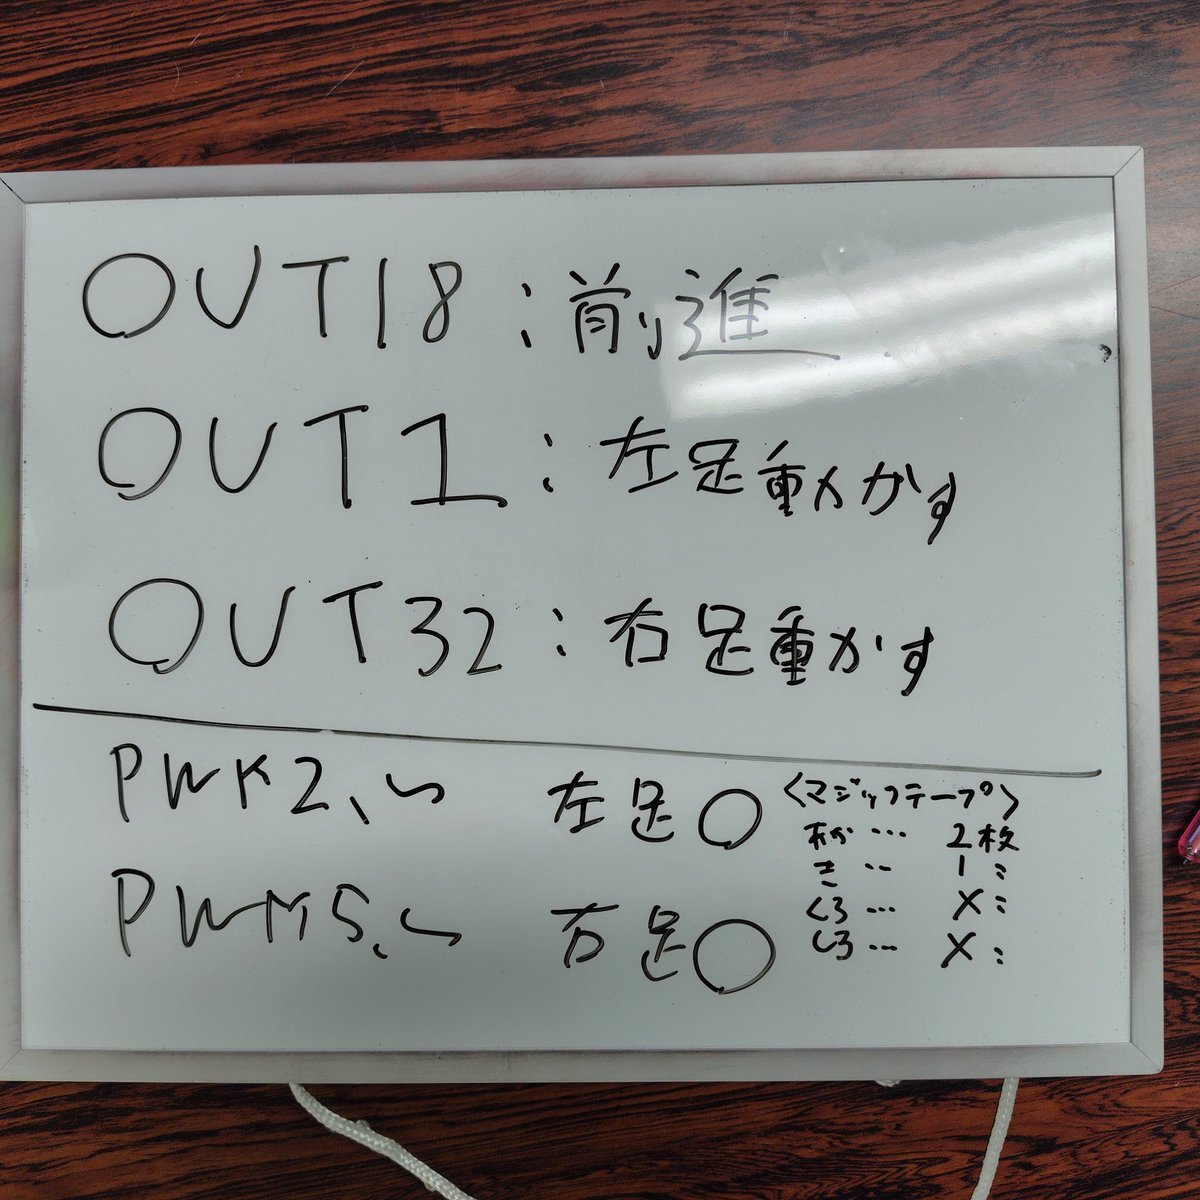 OUT18:前進
OUT1:左足動かす
OUT32:右足動かす
PWM2、〜 左足○
PWM5、〜 右足○
〈マジックテープ〉
あか… 2枚
き… 1〃
くろ… X〃
しろ… X〃